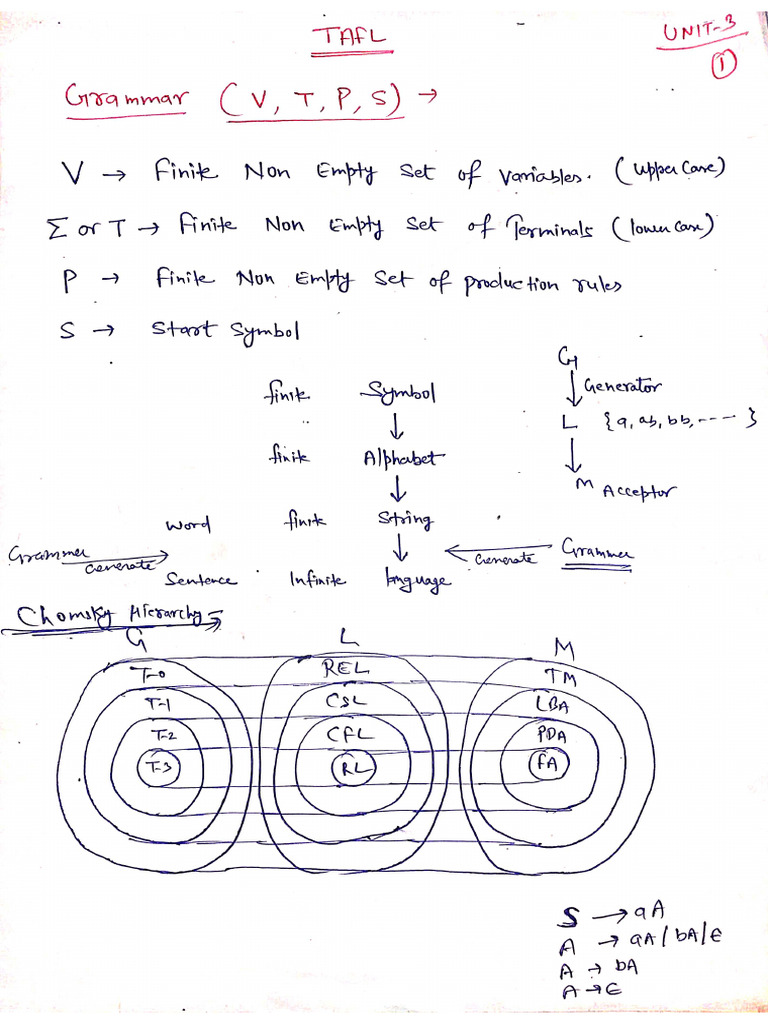 TAFL
UNIT-3
①
Grammar (V, T, P, S) →
V → Finite Non Empty Set of Variables. (Upper Case)
Σ or T → Finite Non Empty Set of Terminals (lower case)
P → Finite Non Empty Set of production rules
S → Start Symbol
G
↓ Generator
L {a, ab, bb, ---- }
↓
M Acceptor
finite Symbol
↓
finite Alphabet
↓
Word finite String
↓
Grammer Generate →
← Generate Grammer
Sentence Infinite language
Chomsky Hierarchy →
G L M
T-0 REL TM
T-1 CSL LBA
T-2 CFL PDA
T-3 RL FA
S → aA
A → aA / bA / ε
A → bA
A → ε